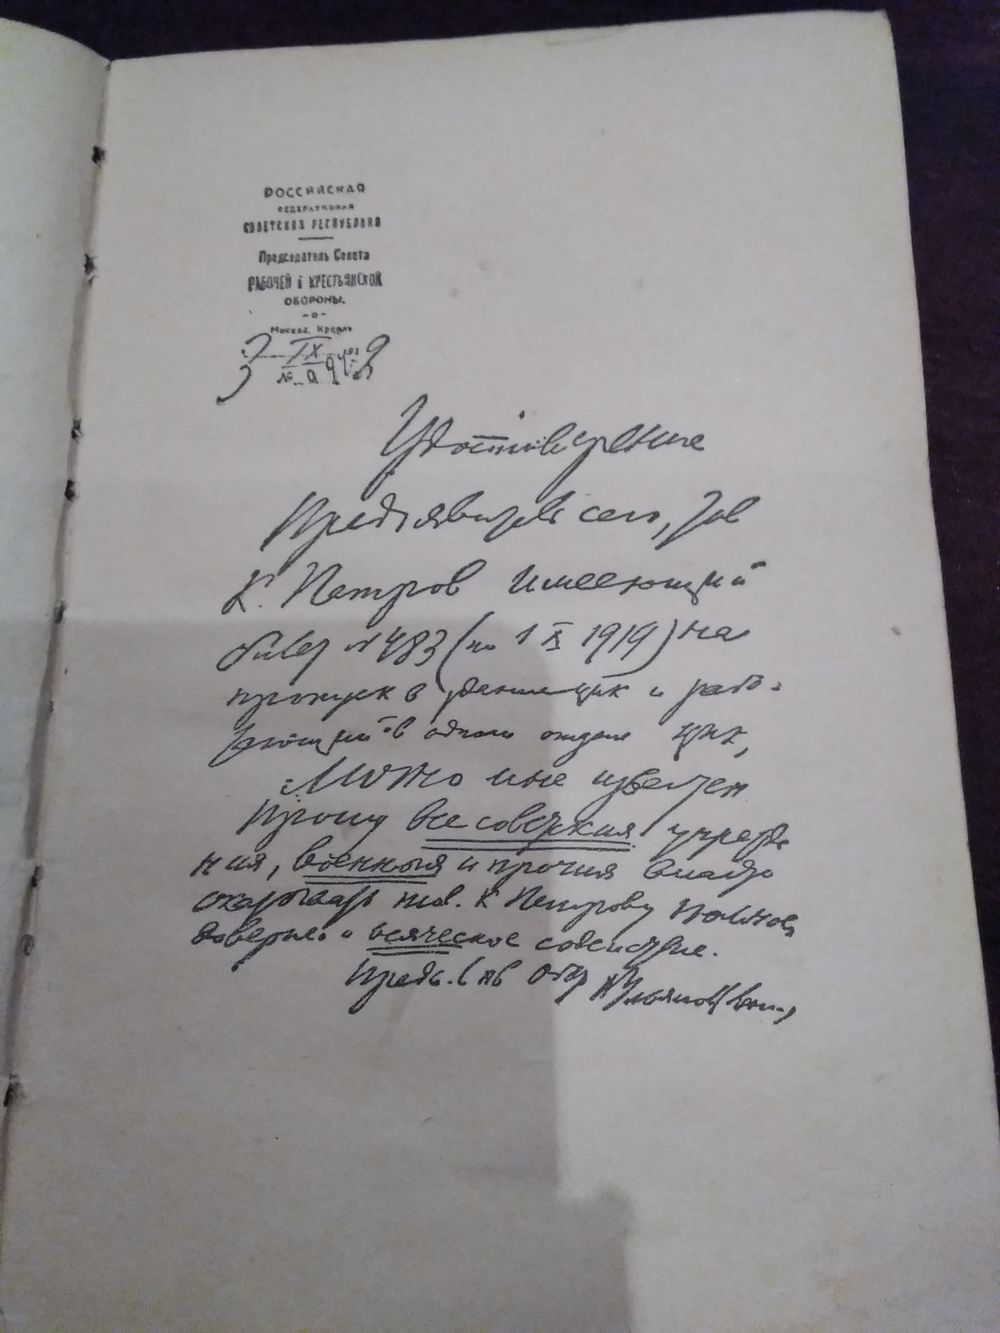 РОССИЙСКАЯ
ФЕДЕРАТИВНАЯ
СОВЕТСКАЯ РЕСПУБЛИКА
Председатель Совета
РАБОЧЕЙ и КРЕСТЬЯНСКОЙ
ОБОРОНЫ.
Москва, Кремль
3 IX
№
Удостоверение
Предъявитель сего, тов
К. Петров имеющий
билет № 483 (по 1 X 1919) на
пропуск в здание цик и рабо-
тающий в одном отделе ЦИК,
лично мне известен
Прошу все советския учрежде
ния, военныя и прочия власти
оказывать тов. К Петрову полное
доверие и всяческое содействие.
Предс. Сов Обор В Ульянов (Ленин)